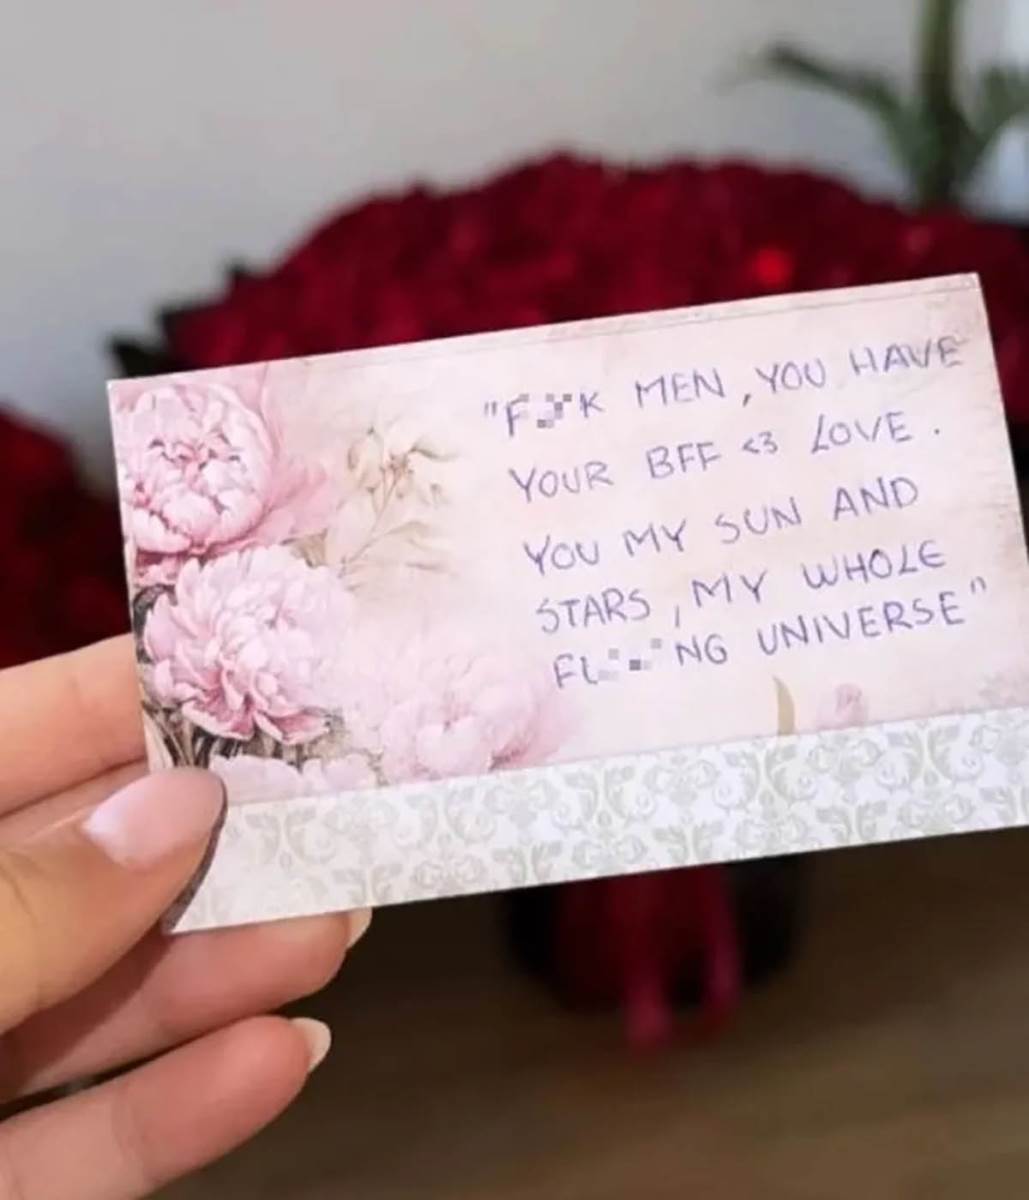 "F**K MEN, YOU HAVE
YOUR BFF <3 LOVE.
YOU MY SUN AND
STARS, MY WHOLE
UNIVERSE"